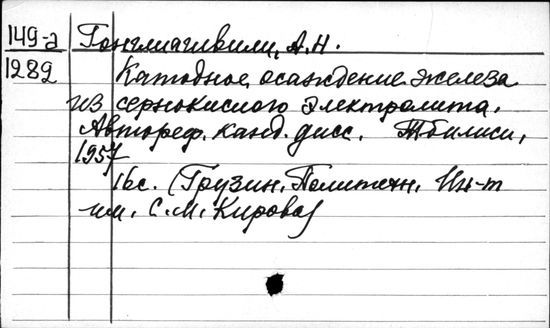 149-а Гонглиашвили, А.Н.
1289 Катодное осаждение железа
из сернокислого электролита.
Автореф. канд. дисс. Тбилиси,
1957
16с. (Грузин. Политехн. Ин-т
им. С.М. Кирова)